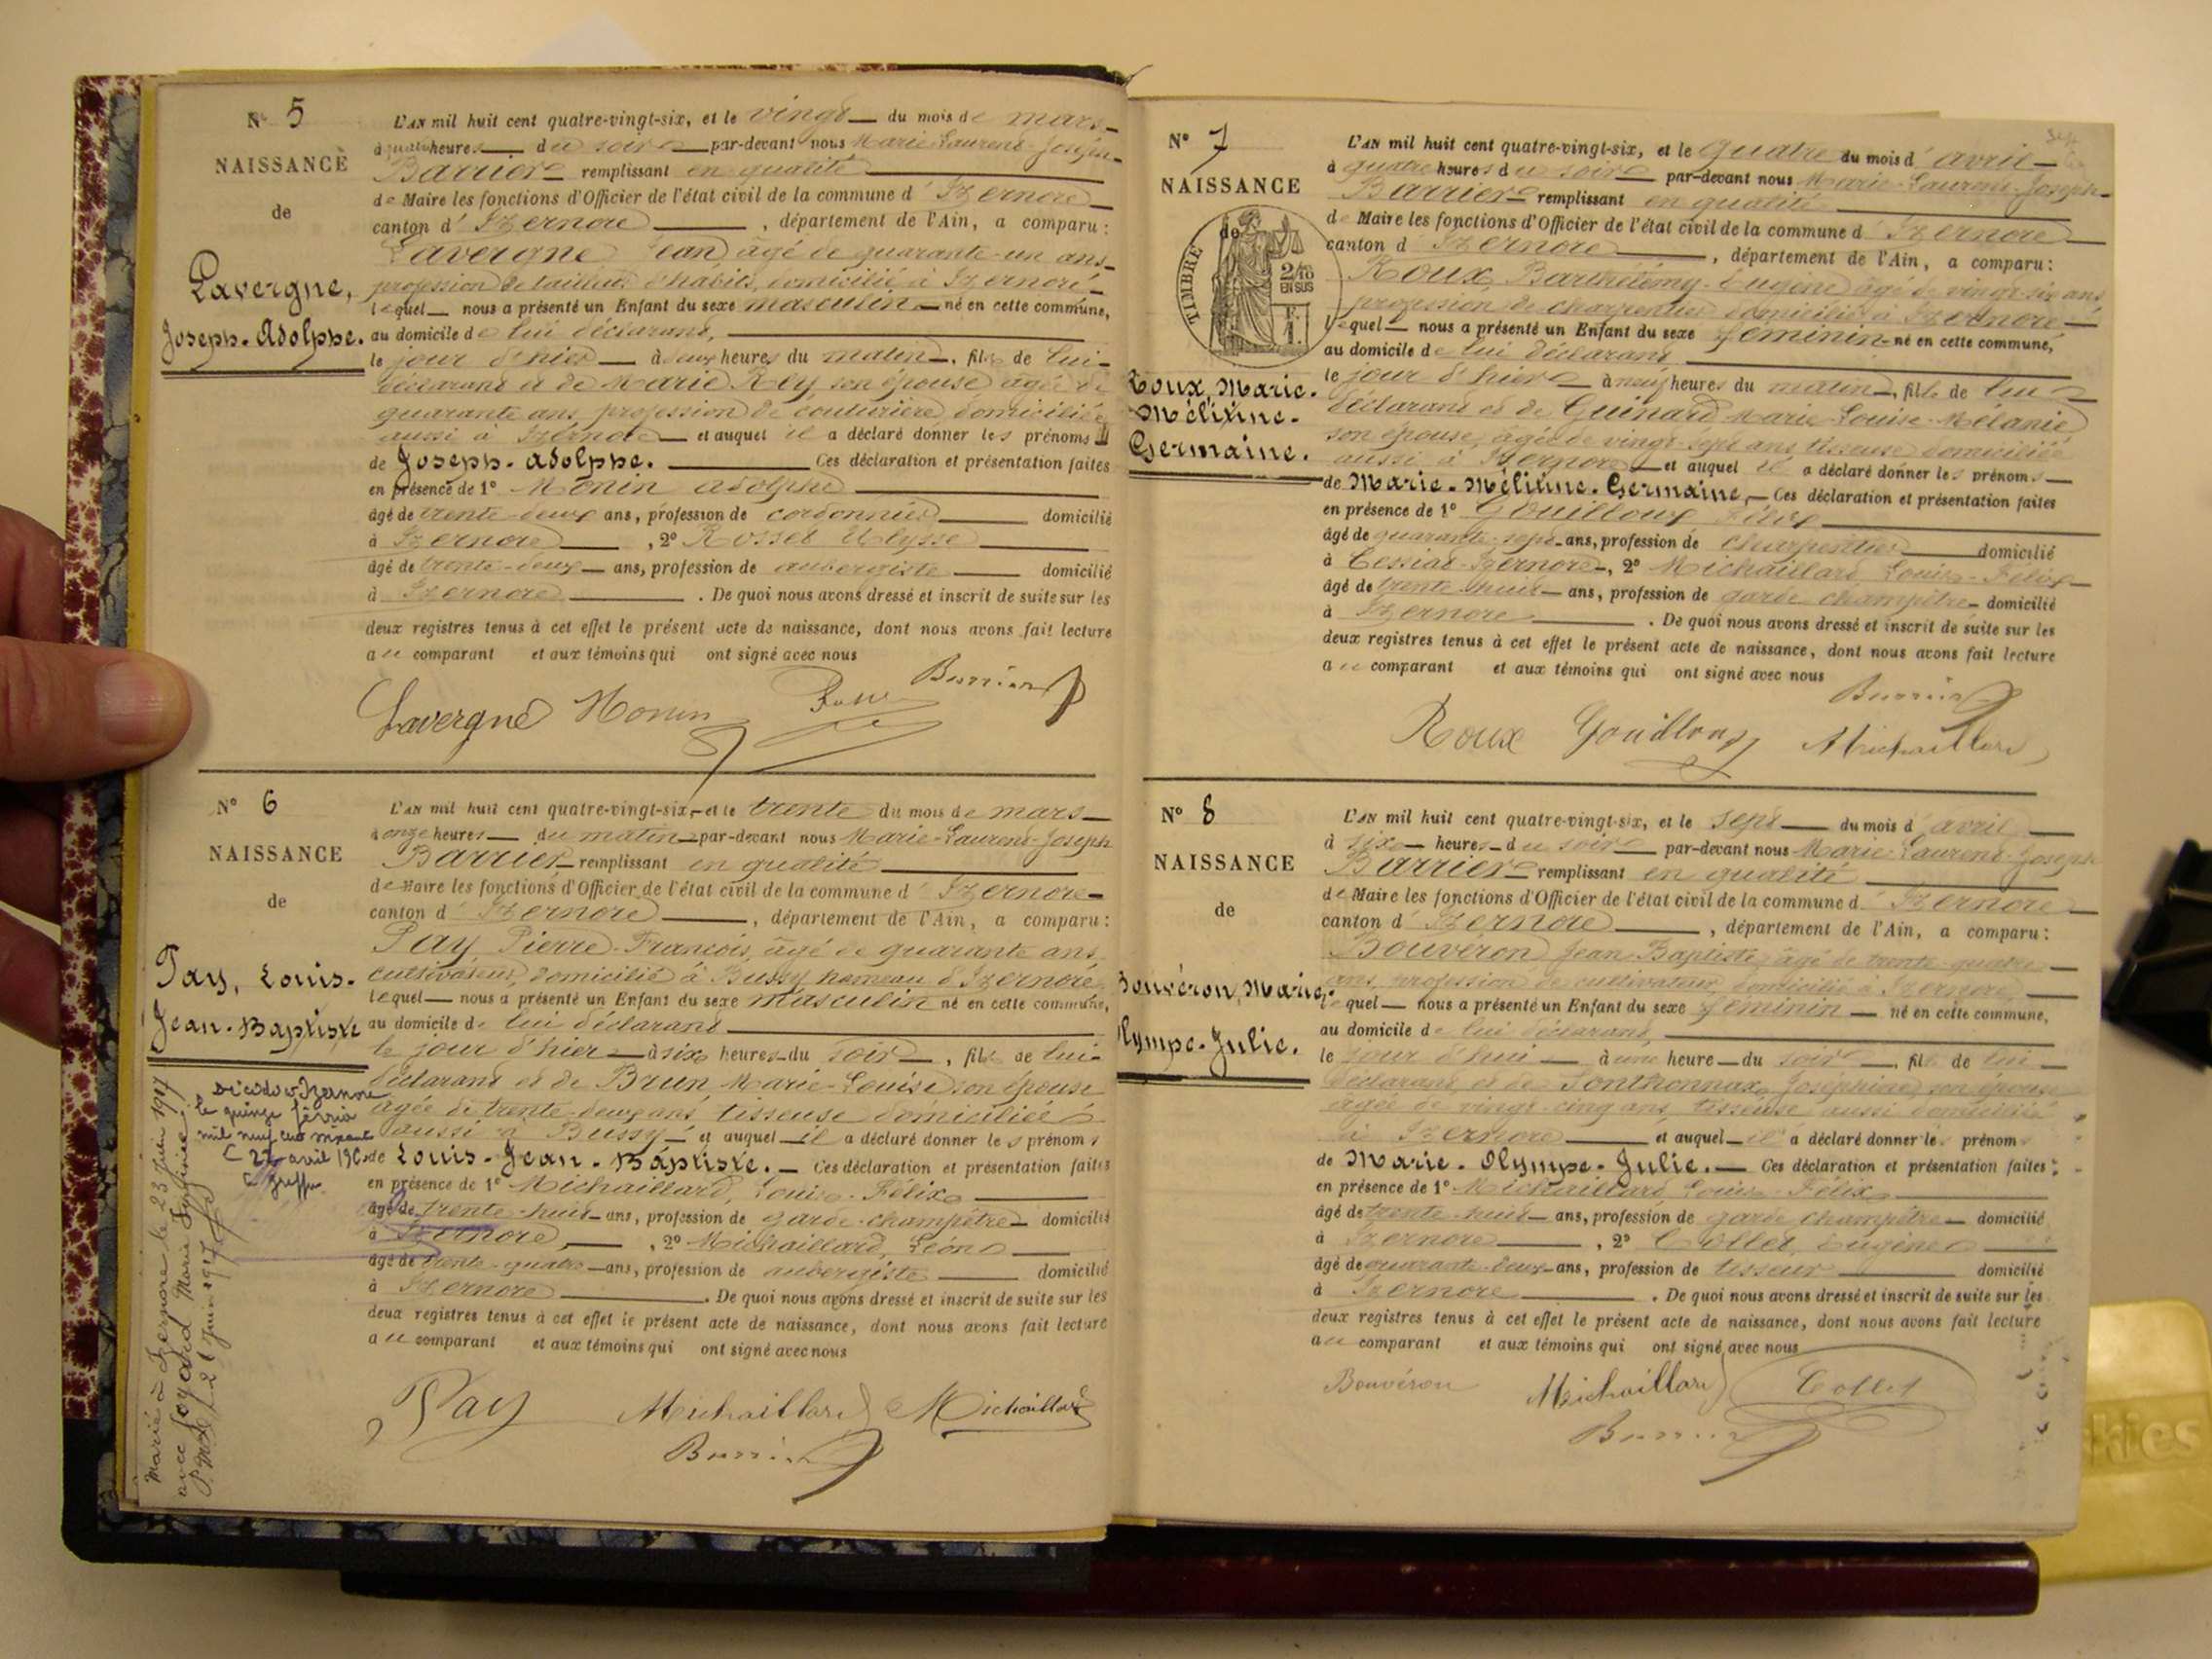 N° 5
NAISSANCE
de
Lavergne,
Joseph-Adolphe.
L'AN mil huit cent quatre-vingt-six, et le vingt du mois de mars
à quatre heures du soir par-devant nous Marie-Laurent-Joseph
Barrier remplissant en qualité
de Maire les fonctions d'Officier de l'état civil de la commune d'Izernore
canton d'Izernore, département de l'Ain, a comparu :
Lavergne Jean âgé de quarante-un ans
profession de tailleur d'habits, domicilié à Izernore
lequel nous a présenté un Enfant du sexe masculin né en cette commune,
au domicile de lui déclarant,
le jour d'hier à deux heures du matin, fils de lui
déclarant et de Marie Rey son épouse âgée de
quarante ans, profession de couturière, domiciliée
aussi à Izernore et auquel il a déclaré donner les prénoms
de Joseph-Adolphe. Ces déclaration et présentation faites
en présence de 1° Monin Adolphe
âgé de trente-deux ans, profession de cordonnier domicilié
à Izernore, 2° Rosset Ulysse
âgé de trente-deux ans, profession de aubergiste domicilié
à Izernore. De quoi nous avons dressé et inscrit de suite sur les
deux registres tenus à cet effet le présent acte de naissance, dont nous avons fait lecture
au comparant et aux témoins qui ont signé avec nous
Barrier
Lavergne Monin
N° 6
NAISSANCE
de
Pay, Louis-
Jean-Baptiste
L'AN mil huit cent quatre-vingt-six, et le trente du mois de mars
à onze heures du matin par-devant nous Marie-Laurent-Joseph
Barrier remplissant en qualité
de Maire les fonctions d'Officier de l'état civil de la commune d'Izernore
canton d'Izernore, département de l'Ain, a comparu :
Pay Pierre-François, âgé de quarante ans
cultivateur, domicilié à Bussy hameau d'Izernore
lequel nous a présenté un Enfant du sexe masculin né en cette commune,
au domicile de lui déclarant
le jour d'hier à six heures du soir, fils de lui
déclarant et de Brun Marie-Louise son épouse
âgée de trente-deux ans, tisseuse domiciliée
aussi à Bussy et auquel il a déclaré donner les prénoms
de Louis-Jean-Baptiste. Ces déclaration et présentation faites
en présence de 1° Michaillard, Louis-Félix
âgé de trente-huit ans, profession de garde-champêtre domicilié
à Izernore, 2° Michaillard, Léon
âgé de trente-quatre ans, profession de aubergiste domicilié
à Izernore. De quoi nous avons dressé et inscrit de suite sur les
deux registres tenus à cet effet le présent acte de naissance, dont nous avons fait lecture
au comparant et aux témoins qui ont signé avec nous
Pay Michaillard Michaillard
Barrier
Décédé à Izernore
le quinze février
mil neuf cent soixante
Marié à Izernore le 23 juin 1917
avec Marie
N° 7
NAISSANCE
de
TIMBRE
2/10
EN SUS
Roux, Marie-
Mélinne-
Germaine.
L'AN mil huit cent quatre-vingt-six, et le quatre du mois d'avril
à quatre heures du soir par-devant nous Marie-Laurent-Joseph
Barrier remplissant en qualité
de Maire les fonctions d'Officier de l'état civil de la commune d'Izernore
canton d'Izernore, département de l'Ain, a comparu :
Roux Barthélémy-Eugène âgé de vingt-six ans
profession de charpentier domicilié à Izernore
lequel nous a présenté un Enfant du sexe féminin né en cette commune,
au domicile de lui déclarant
le jour d'hier à neuf heures du matin, fille de lui
déclarant et de Guinard Marie-Louise-Mélanie
son épouse, âgée de vingt-sept ans, tisseuse domiciliée
aussi à Izernore et auquel il a déclaré donner les prénoms
de Marie-Mélinne-Germaine, Ces déclaration et présentation faites
en présence de 1° Gouilloux Félix
âgé de quarante-sept ans, profession de charpentier domicilié
à Cessiat-Izernore, 2° Michaillard, Louis-Félix
âgé de trente-huit ans, profession de garde champêtre domicilié
à Izernore. De quoi nous avons dressé et inscrit de suite sur les
deux registres tenus à cet effet le présent acte de naissance, dont nous avons fait lecture
au comparant et aux témoins qui ont signé avec nous
Barrier
Roux Gouilloux Michaillard
N° 8
NAISSANCE
de
Bouvéron, Marie-
Olympe-Julie.
L'AN mil huit cent quatre-vingt-six, et le sept du mois d'avril
à six heures du soir par-devant nous Marie-Laurent-Joseph
Barrier remplissant en qualité
de Maire les fonctions d'Officier de l'état civil de la commune d'Izernore
canton d'Izernore, département de l'Ain, a comparu :
Bouvéron Jean-Baptiste, âgé de trente-quatre
ans, profession de cultivateur, domicilié à Izernore
lequel nous a présenté un Enfant du sexe féminin né en cette commune,
au domicile de lui déclarant,
le jour d'hui à une heure du soir, fille de lui
déclarant et de Ponthonnax, Joséphine, son épouse
âgée de vingt-cinq ans, tisseuse aussi domiciliée
à Izernore et auquel il a déclaré donner le prénom
de Marie-Olympe-Julie. Ces déclaration et présentation faites
en présence de 1° Michaillard Louis-Félix
âgé de trente-huit ans, profession de garde champêtre domicilié
à Izernore, 2° Collet, Eugène
âgé de quarante-deux ans, profession de tisseur domicilié
à Izernore. De quoi nous avons dressé et inscrit de suite sur les
deux registres tenus à cet effet le présent acte de naissance, dont nous avons fait lecture
au comparant et aux témoins qui ont signé avec nous
Bouvéron Michaillard Collet
Barrier
kies